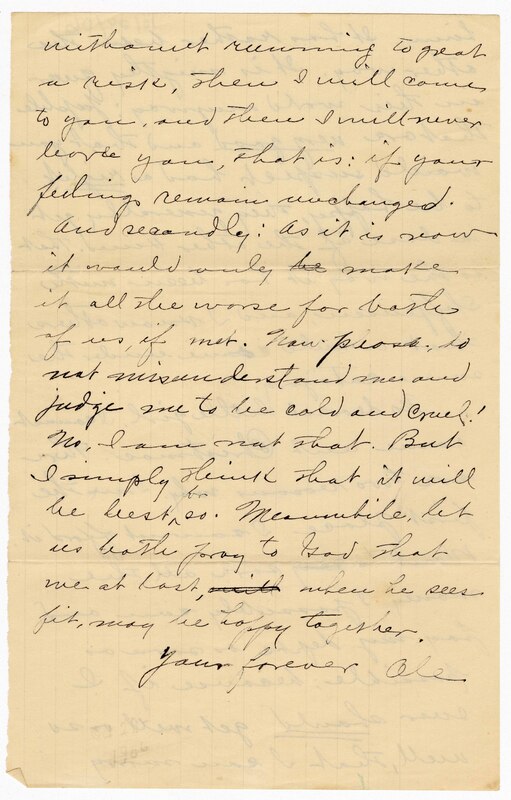 without running to great
a risk, then I will come
to you, and then I will never
leave you, that is: if your
feelings remain unchanged.
And secondly: As it is now
it would only be make
it all the worse for both
of us, if met. Now please, do
not misunderstand me and
judge me to be cold and cruel!
No, I am not that. But
I simply think that it will
be best, so. Meanwhile, let
us both pray to God that
we at last, will when he sees
fit, may be happy together.
Your forever Ole